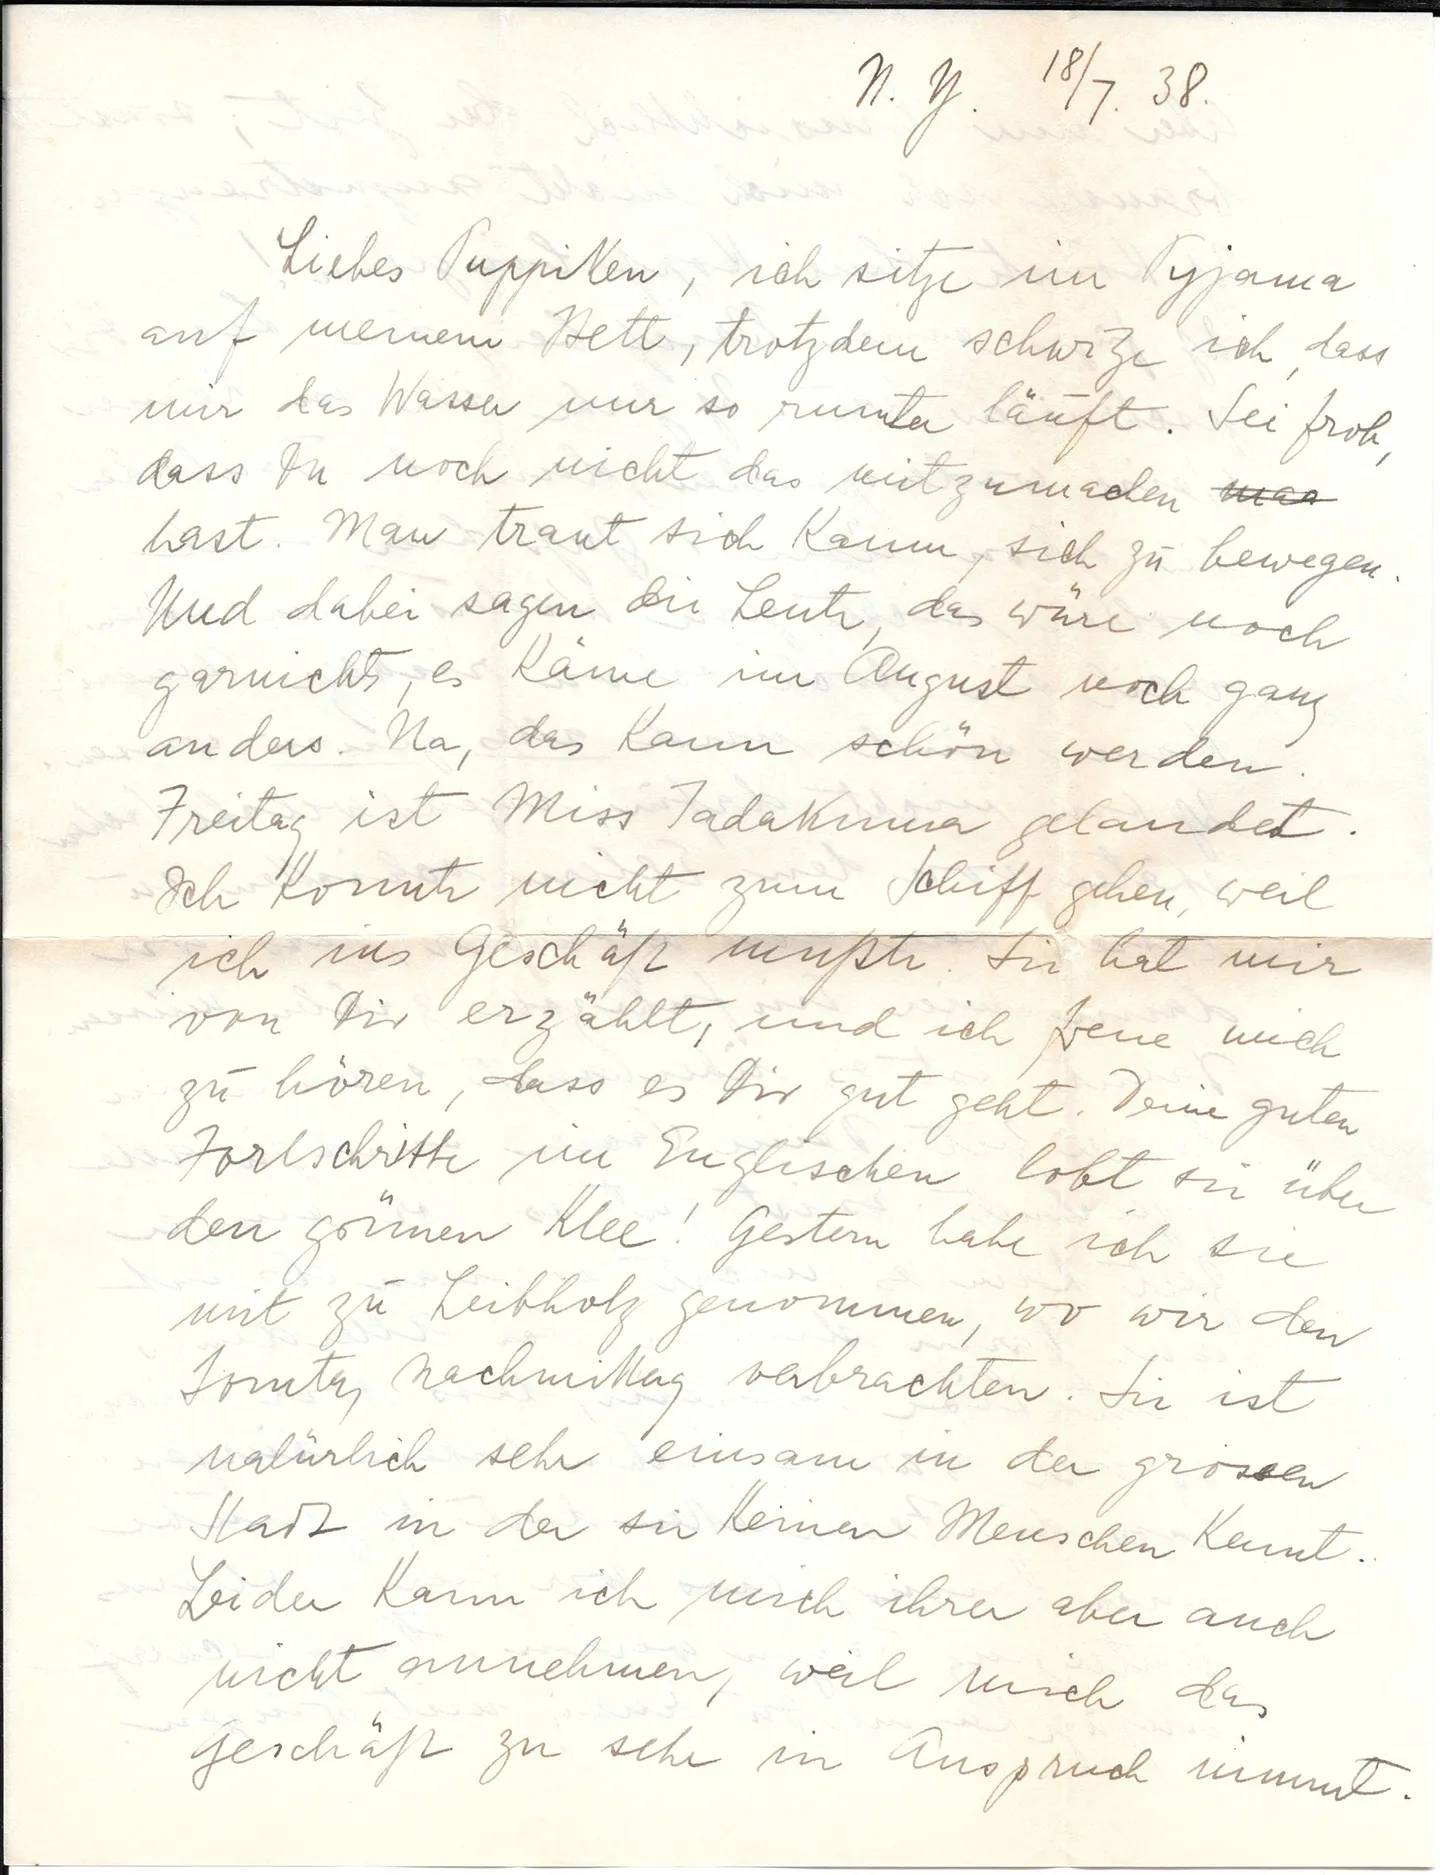 N. Y. 18/7. 38.
Liebes Puppiken, ich sitze im Pyjama
auf meinem Bett, trotzdem schwitze ich, dass
mir das Wasser nur so runter läuft. Sei froh,
dass Du noch nicht das mitzumachen
hast. Man traut sich kaum, sich zu bewegen.
Und dabei sagen die Leute, das wäre noch
garnichts, es käme im August noch ganz
anders. Na, das kann schön werden.
Freitag ist Miss Tadakuma gelandet.
Ich konnte nicht zum Schiff gehen, weil
ich ins Geschäft mußte. Sie hat mir
von Dir erzählt, und ich freue mich
zu hören, dass es Dir gut geht. Deine guten
Fortschritte im Englischen lobt sie über
den grünen Klee! Gestern habe ich sie
mit zu Leibholz genommen, wo wir den
Sonntag nachmittag verbrachten. Sie ist
natürlich sehr einsam in der grossen
Stadt in der sie keinen Menschen kennt.
Leider kann ich mich ihrer aber auch
nicht annehmen, weil mich das
Geschäft zu sehr in Anspruch nimmt.